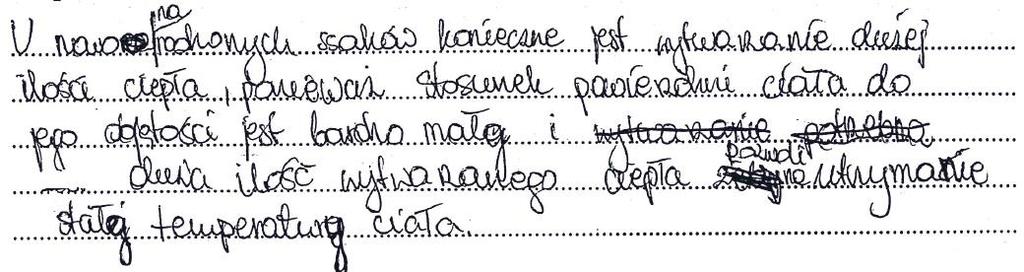 U nowonarodzonych ssaków konieczne jest wytwarzanie dużej
ilości ciepła, ponieważ stosunek powierzchni ciała do
jego objętości jest bardzo małej i wytwarzanie potrzebna
duża ilość wytwarzanego ciepła pozwoli na utrzymanie
stałej temperatury ciała.